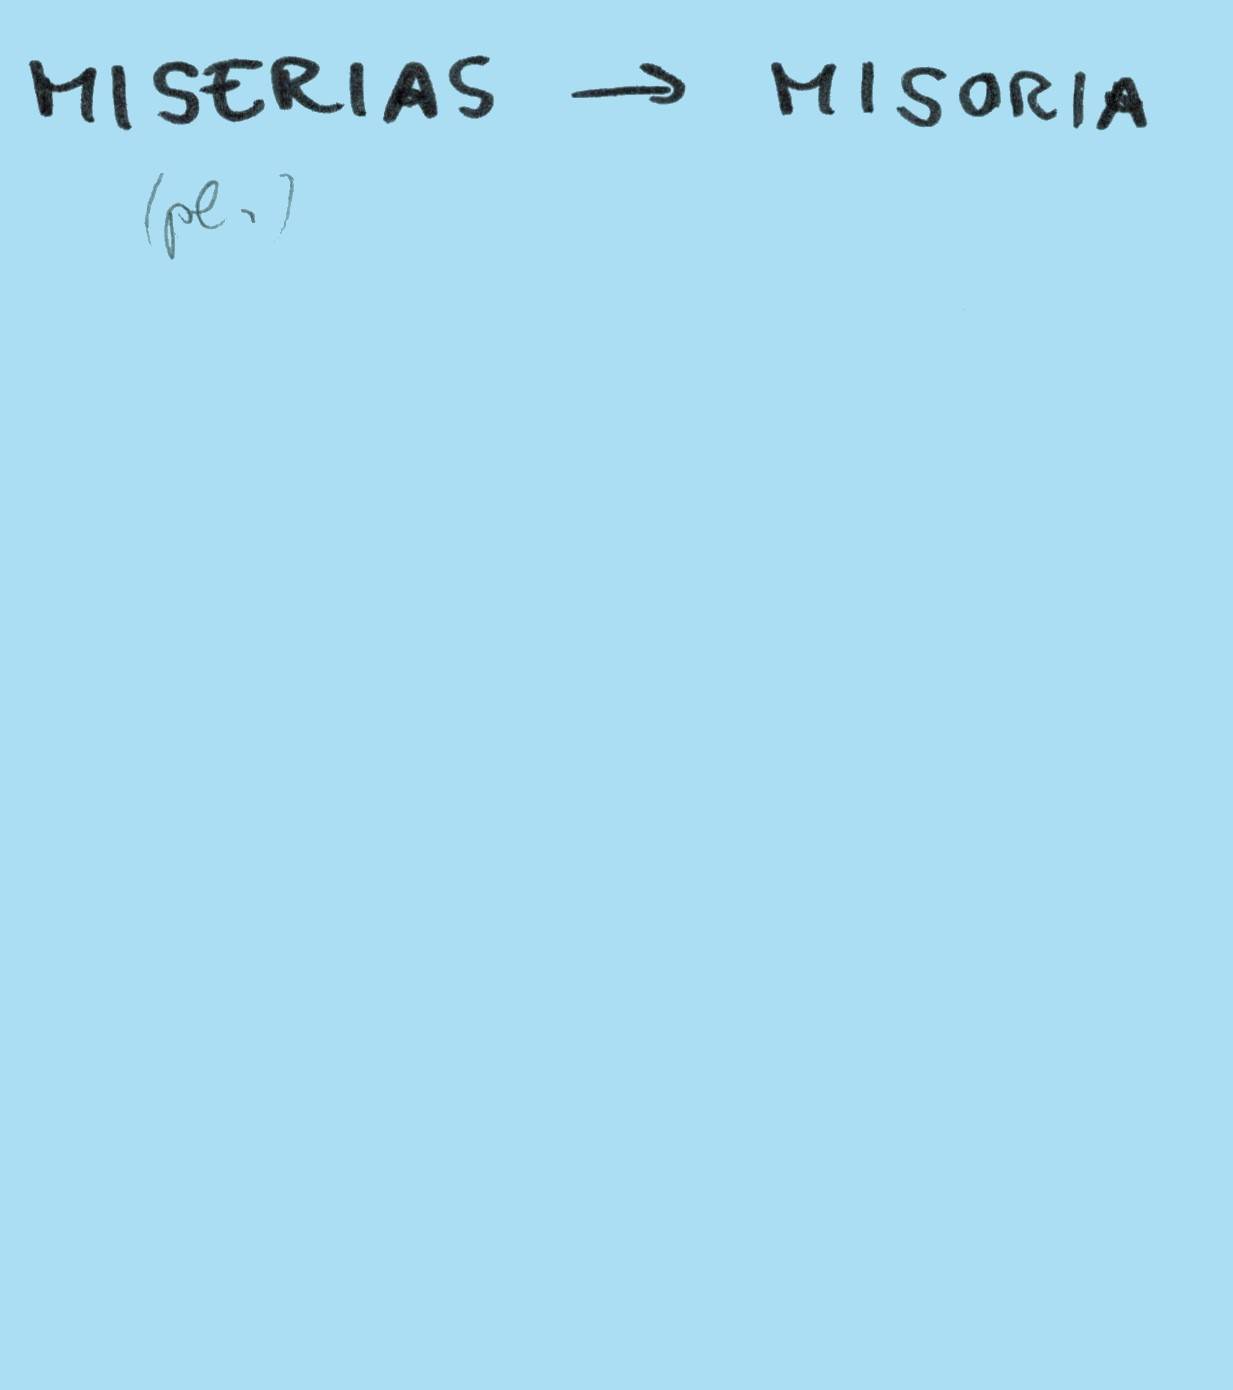 MISERIAS → MISORIA
(pl.)